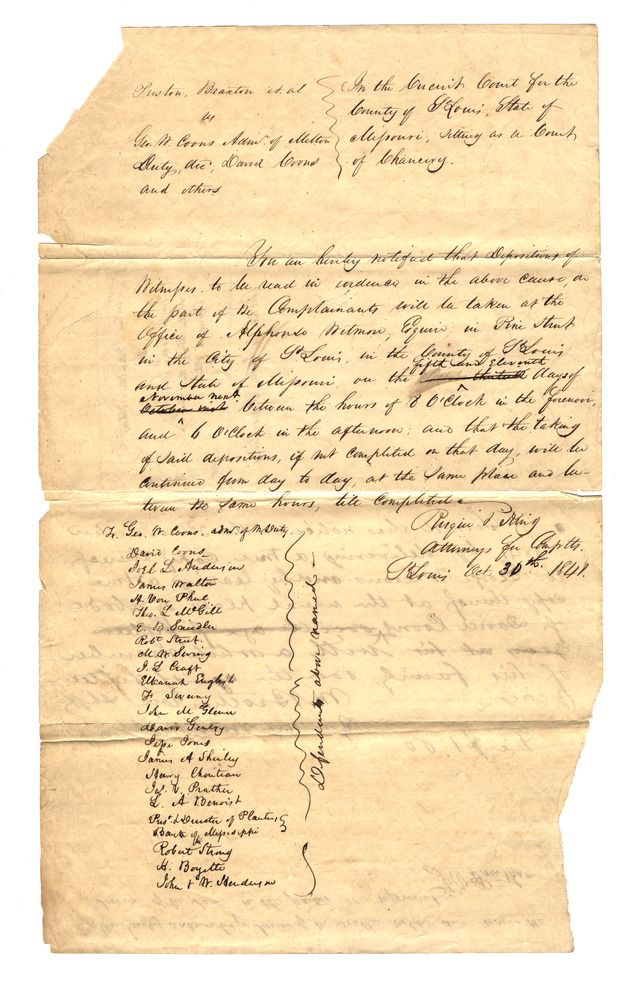 Preston, Braxton et. al
vs
Geo. W. Coons Admr. of Milton
Duty, dec., David Coons
and others
In the Circuit Court for the
County of St Louis, State of
Missouri, sitting as a Court
of Chancery.
You are hereby notified that Depositions of
Witnesses to be read in evidence in the above cause, on
the part of the Complainants will be taken at the
Office of Alphonso Wetmore, Esquire in Pine Street
in the City of St Louis, in the County of St Louis
fifth and Eleventh
and State of Missouri, on the thirtieth days of
November next
October next between the hours of 8 O'Clock in the forenoon,
and 6 O'Clock in the afternoon; and that the taking
of said depositions, if not completed on that day, will be
continued from day to day, at the same place and be-
tween the same hours, till completed.
Attorneys for Complts.
St Louis Oct. 30th 1841.
To Geo. W. Coons, admr. of M. Duty.
David Coons
Joel L Anderson
James Walton
H. Von Phul
Theo. L McGill
Robt Street
J. L Craft
Elkanah English
John M Glenn
David Gentry
Jesse Jones
James A Shirley
Henry Chouteau
Jas. V. Prather
L. A Benoist
Pest. & Director of Planters
Bank of Mississippi
Robert Strong
H. Boyette
John & W. Henderson
Defendants above named